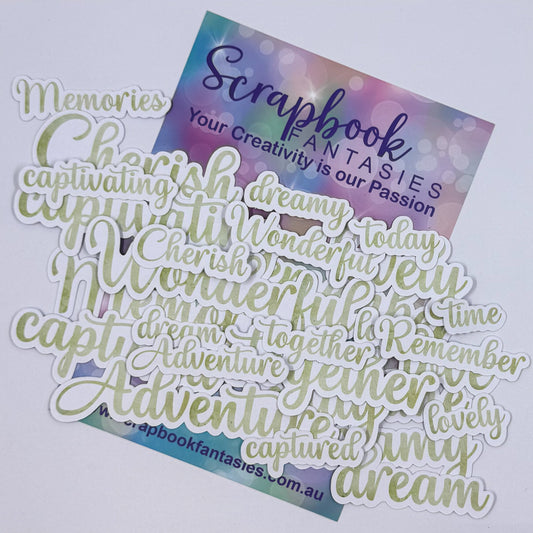 Scrapbook
FANTASIES
Your Creativity is our Passion
Memories
Cherish
captivating
dreamy
today
captivati
Wonderful
Cherish
Wonderful
time
dream
together
Remember
Adventure
gether
Adventure
lovely
captured
amy
dream
scrapbookfantasies.com.au